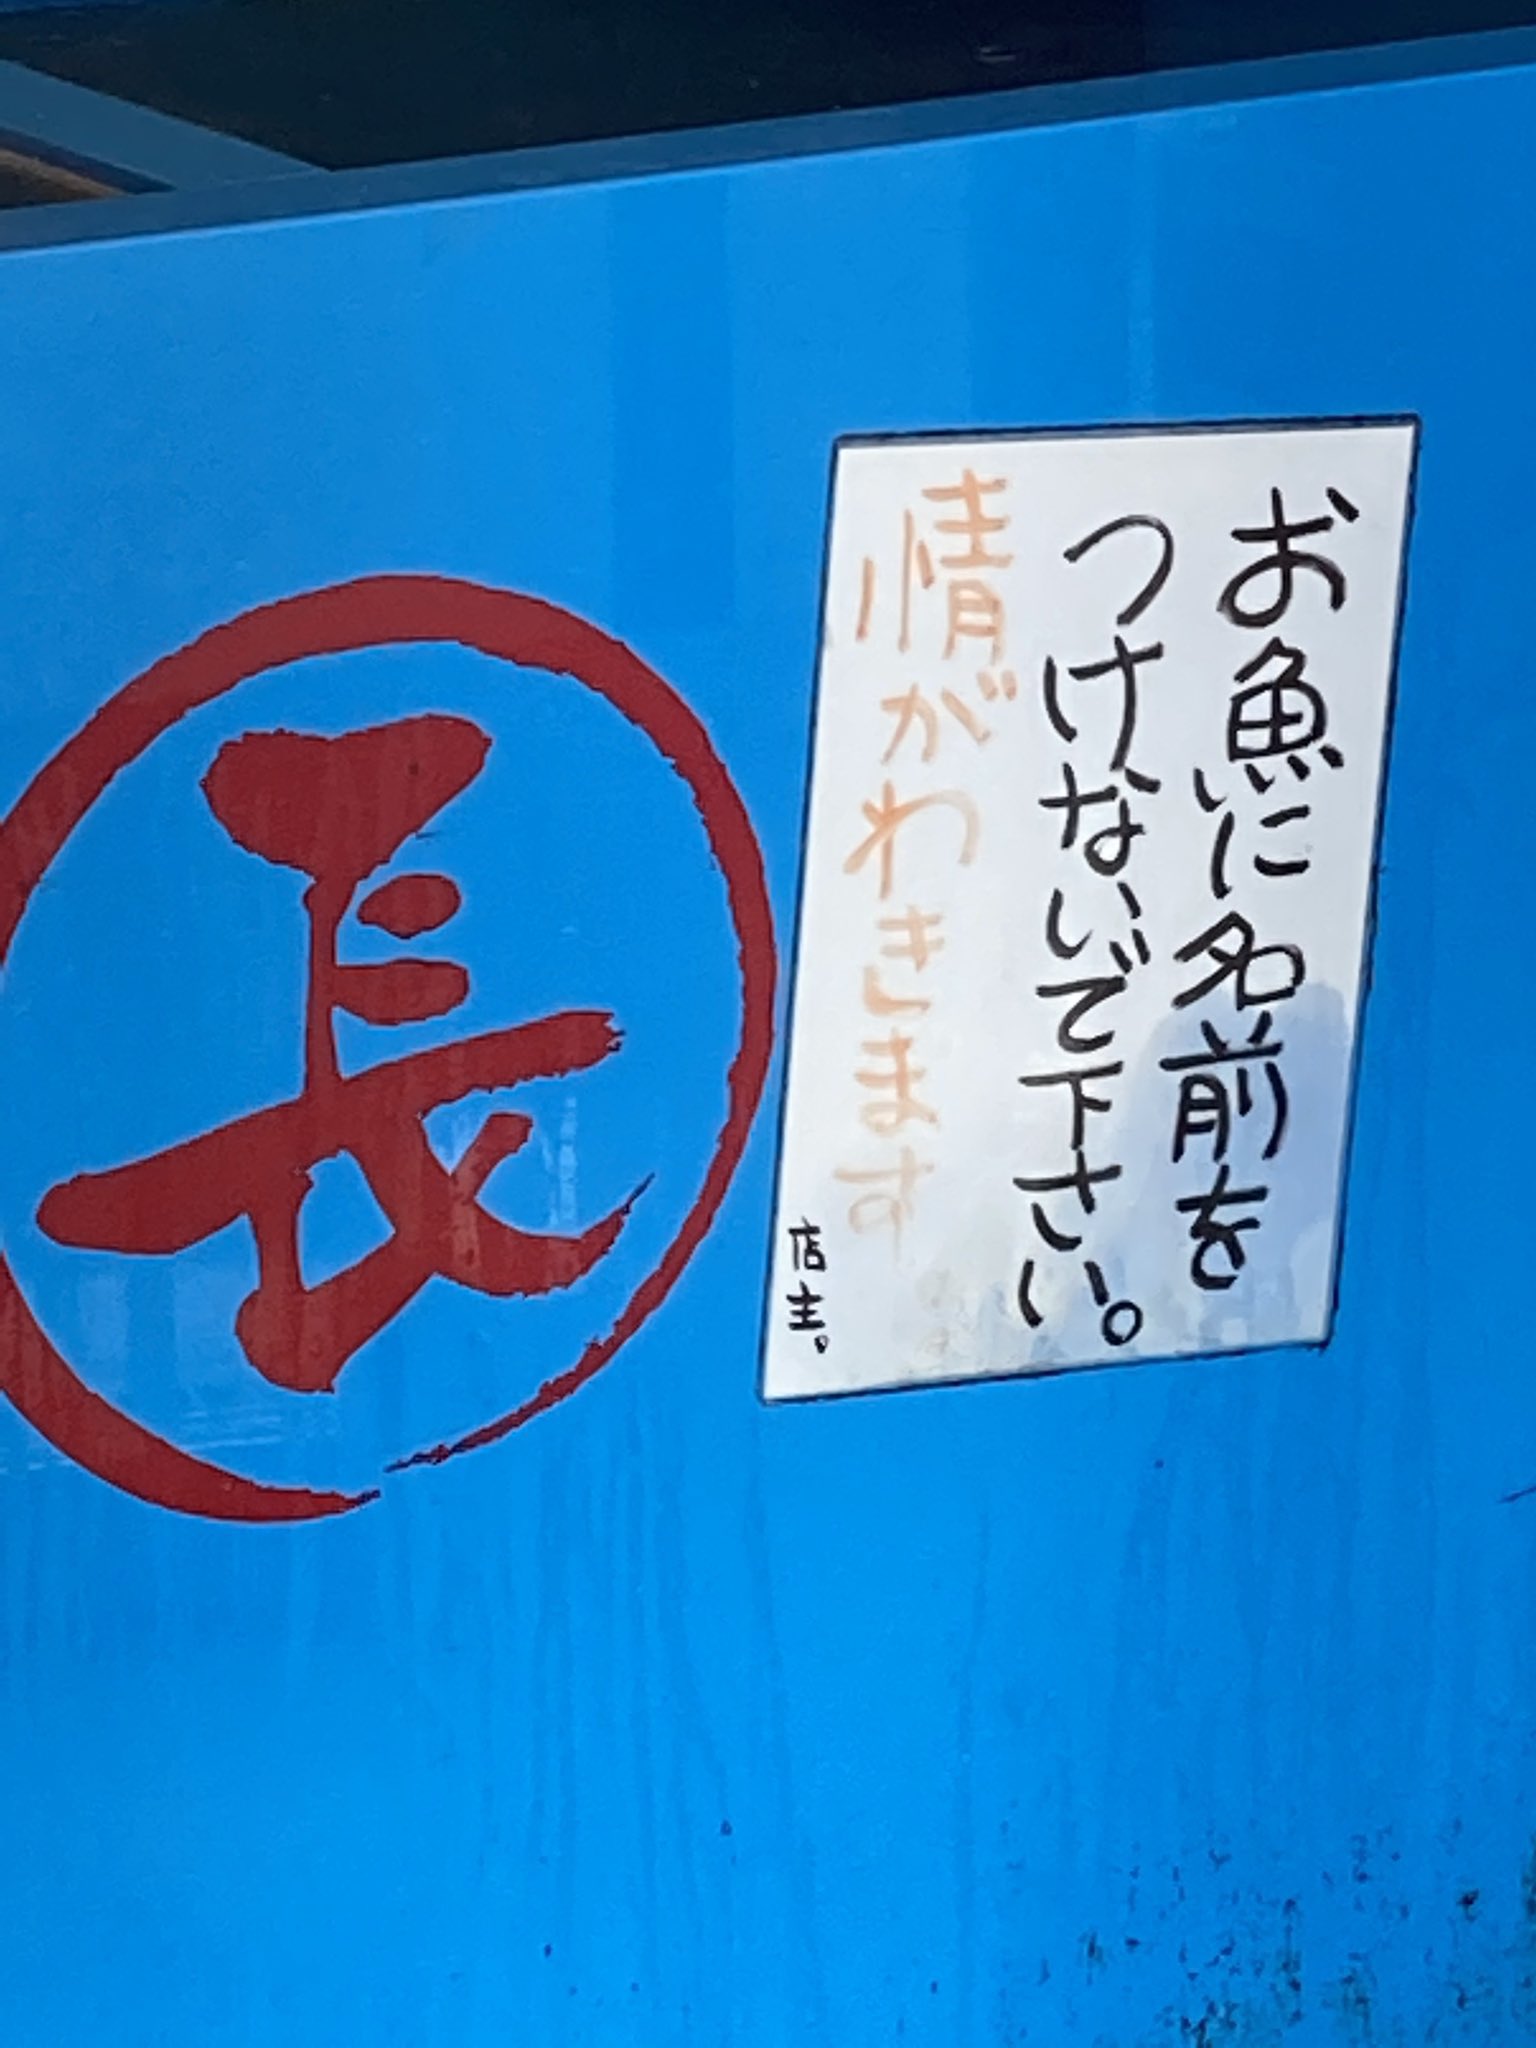 お魚に名前を
つけないで下さい。
情がわきます
店主。
長